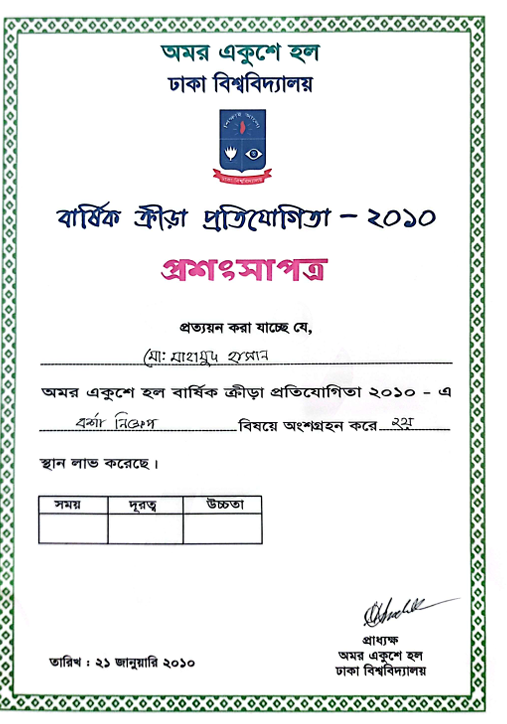 অমর একুশে হল
ঢাকা বিশ্ববিদ্যালয়
শিক্ষাই আলো
ঢাকা বিশ্ববিদ্যালয়
বার্ষিক ক্রীড়া প্রতিযোগিতা – ২০১০
প্রশংসাপত্র
প্রত্যয়ন করা যাচ্ছে যে,
মো: মাহামুদ হাসান
অমর একুশে হল বার্ষিক ক্রীড়া প্রতিযোগিতা ২০১০ - এ
বর্শা নিক্ষেপ বিষয়ে অংশগ্রহন করে ২য়
স্থান লাভ করেছে।
সময় দূরত্ব উচ্চতা
প্রাধ্যক্ষ
অমর একুশে হল
ঢাকা বিশ্ববিদ্যালয়
তারিখ : ২১ জানুয়ারি ২০১০